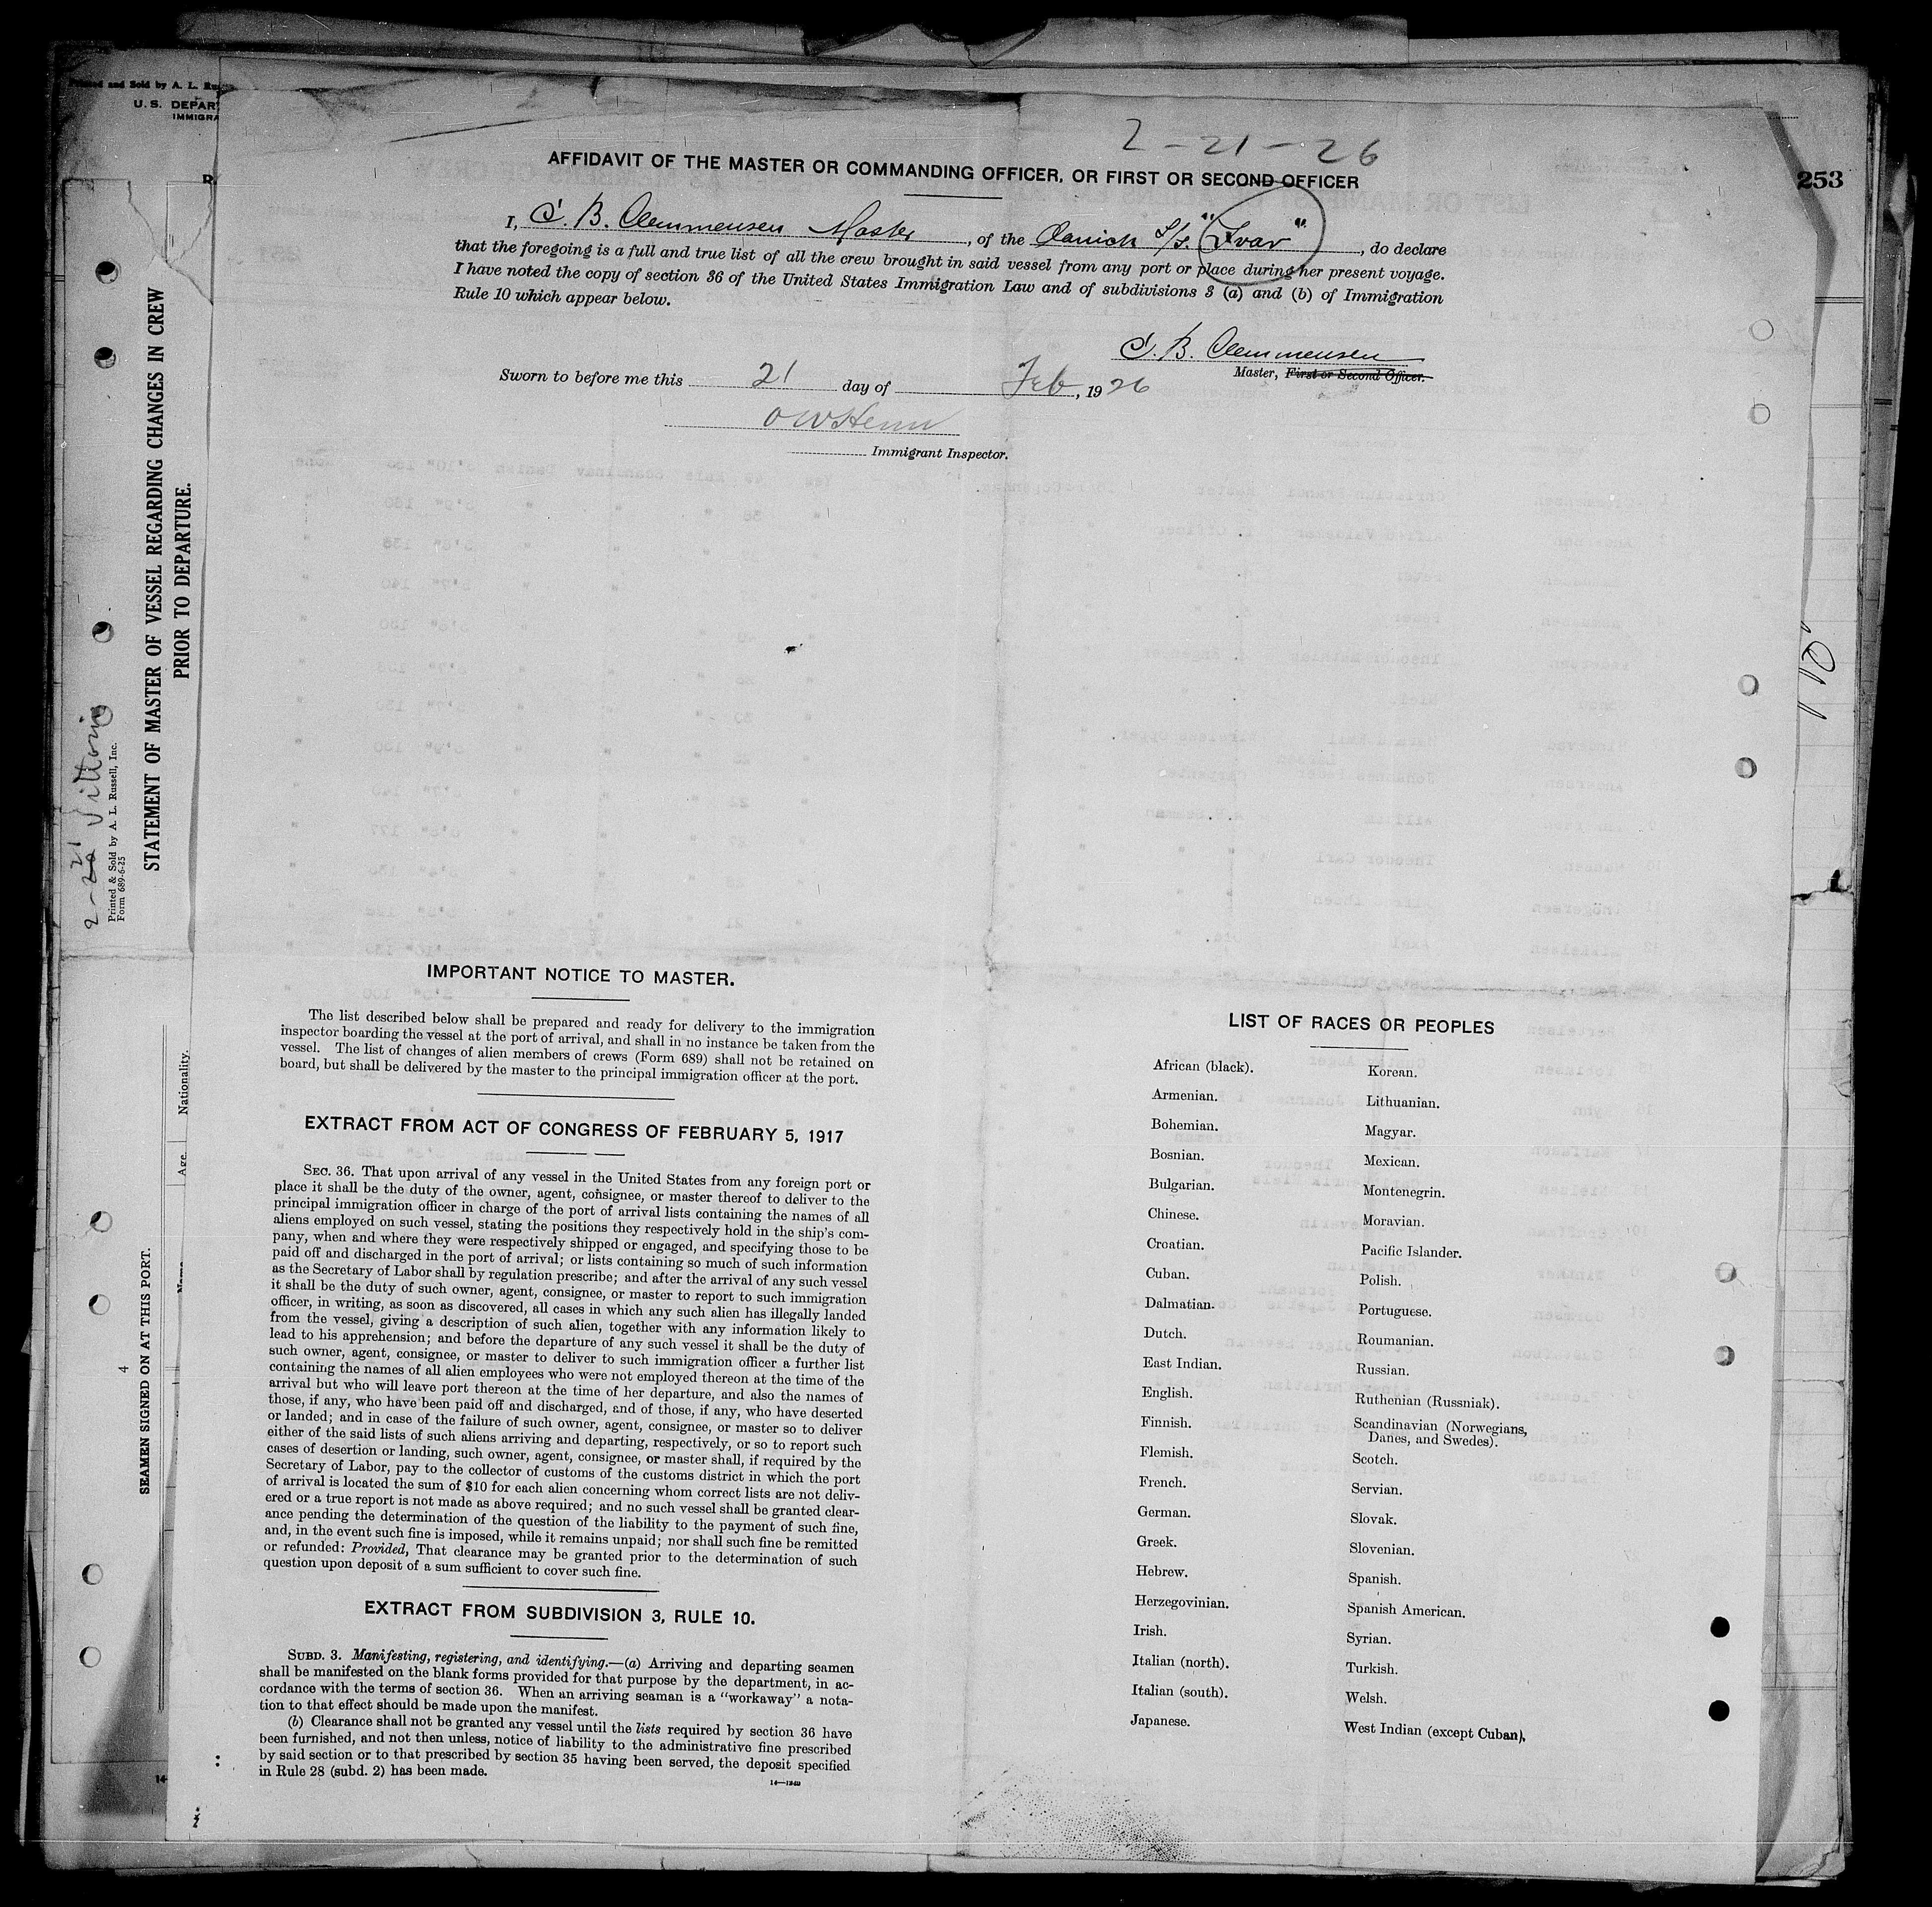 Printed and Sold by A. L. Rus
U.S. DEPAR
IMMIGRA
2-21-26
253
AFFIDAVIT OF THE MASTER OR COMMANDING OFFICER, OR FIRST OR SECOND OFFICER
I, C. B. Clemmensen Master, of the Danish S/S. "Ivar", do declare
that the foregoing is a full and true list of all the crew brought in said vessel from any port or place during her present voyage.
I have noted the copy of section 36 of the United States Immigration Law and of subdivisions 3 (a) and (b) of Immigration
Rule 10 which appear below.
C. B. Clemmensen
Master, First or Second Officer.
Sworn to before me this 21 day of Feb, 1926
Immigrant Inspector.
STATEMENT OF MASTER OF VESSEL REGARDING CHANGES IN CREW
PRIOR TO DEPARTURE.
Printed & Sold by A. L. Russell, Inc.
Form 689-6-25
Nationality.
Age.
4
SEAMEN SIGNED ON AT THIS PORT.
IMPORTANT NOTICE TO MASTER.
The list described below shall be prepared and ready for delivery to the immigration
inspector boarding the vessel at the port of arrival, and shall in no instance be taken from the
vessel. The list of changes of alien members of crews (Form 689) shall not be retained on
board, but shall be delivered by the master to the principal immigration officer at the port.
EXTRACT FROM ACT OF CONGRESS OF FEBRUARY 5, 1917
SEC. 36. That upon arrival of any vessel in the United States from any foreign port or
place it shall be the duty of the owner, agent, consignee, or master thereof to deliver to the
principal immigration officer in charge of the port of arrival lists containing the names of all
aliens employed on such vessel, stating the positions they respectively hold in the ship's com-
pany, when and where they were respectively shipped or engaged, and specifying those to be
paid off and discharged in the port of arrival; or lists containing so much of such information
as the Secretary of Labor shall by regulation prescribe; and after the arrival of any such vessel
it shall be the duty of such owner, agent, consignee, or master to report to such immigration
officer, in writing, as soon as discovered, all cases in which any such alien has illegally landed
from the vessel, giving a description of such alien, together with any information likely to
lead to his apprehension; and before the departure of any such vessel it shall be the duty of
such owner, agent, consignee, or master to deliver to such immigration officer a further list
containing the names of all alien employees who were not employed thereon at the time of the
arrival but who will leave port thereon at the time of her departure, and also the names of
those, if any, who have been paid off and discharged, and of those, if any, who have deserted
or landed; and in case of the failure of such owner, agent, consignee, or master so to deliver
either of the said lists of such aliens arriving and departing, respectively, or so to report such
cases of desertion or landing, such owner, agent, consignee, or master shall, if required by the
Secretary of Labor, pay to the collector of customs of the customs district in which the port
of arrival is located the sum of $10 for each alien concerning whom correct lists are not deliv-
ered or a true report is not made as above required; and no such vessel shall be granted clear-
ance pending the determination of the question of the liability to the payment of such fine,
and, in the event such fine is imposed, while it remains unpaid; nor shall such fine be remitted
or refunded: Provided, That clearance may be granted prior to the determination of such
question upon deposit of a sum sufficient to cover such fine.
EXTRACT FROM SUBDIVISION 3, RULE 10.
SUBD. 3. Manifesting, registering, and identifying.—(a) Arriving and departing seamen
shall be manifested on the blank forms provided for that purpose by the department, in ac-
cordance with the terms of section 36. When an arriving seaman is a "workaway" a nota-
tion to that effect should be made upon the manifest.
(b) Clearance shall not be granted any vessel until the lists required by section 36 have
been furnished, and not then unless, notice of liability to the administrative fine prescribed
by said section or to that prescribed by section 35 having been served, the deposit specified
in Rule 28 (subd. 2) has been made.
14—1240
LIST OF RACES OR PEOPLES
African (black).
Armenian.
Bohemian.
Bosnian.
Bulgarian.
Chinese.
Croatian.
Cuban.
Dalmatian.
Dutch.
East Indian.
English.
Finnish.
Flemish.
French.
German.
Greek.
Hebrew.
Herzegovinian.
Irish.
Italian (north).
Italian (south).
Japanese.
Korean.
Lithuanian.
Magyar.
Mexican.
Montenegrin.
Moravian.
Pacific Islander.
Polish.
Portuguese.
Roumanian.
Russian.
Ruthenian (Russniak).
Scandinavian (Norwegians,
Danes, and Swedes).
Scotch.
Servian.
Slovak.
Slovenian.
Spanish.
Spanish American.
Syrian.
Turkish.
Welsh.
West Indian (except Cuban).